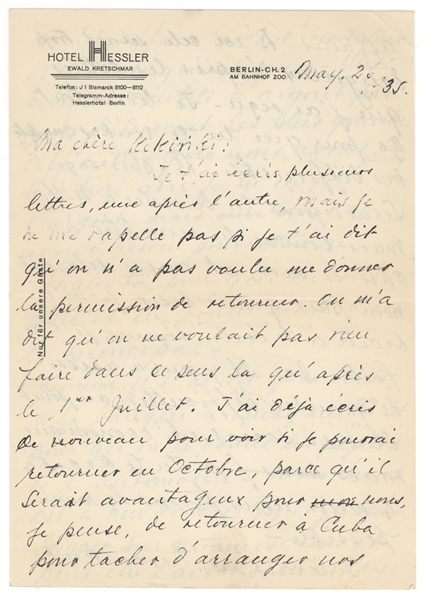 HOTEL HESSLER
EWALD KRETSCHMAR
Telefon: J 1 Bismarck 8100—8112
Telegramm-Adresse:
Hesslerhotel Berlin
BERLIN-CH. 2
AM BAHNHOF ZOO
May. 20 35.
Ma chère Kikiriki:
Je t'ai écris plusieurs
lettres, une après l'autre, mais je
ne me rapelle pas si je t'ai dit
qu'on n'a pas voulu me donner
la permission de retourner. On m'a
dit qu'on ne voulait pas rien
faire dans ce sens la qu'après
le 1er Juillet. J'ai déjà écris
de nouveau pour voir si je pourrai
retourner en Octobre, parce qu'il
serait avantageux pour nous,
je pense, de retourner à Cuba
pour tacher d'arranger nos
Nur für unsere Gäste